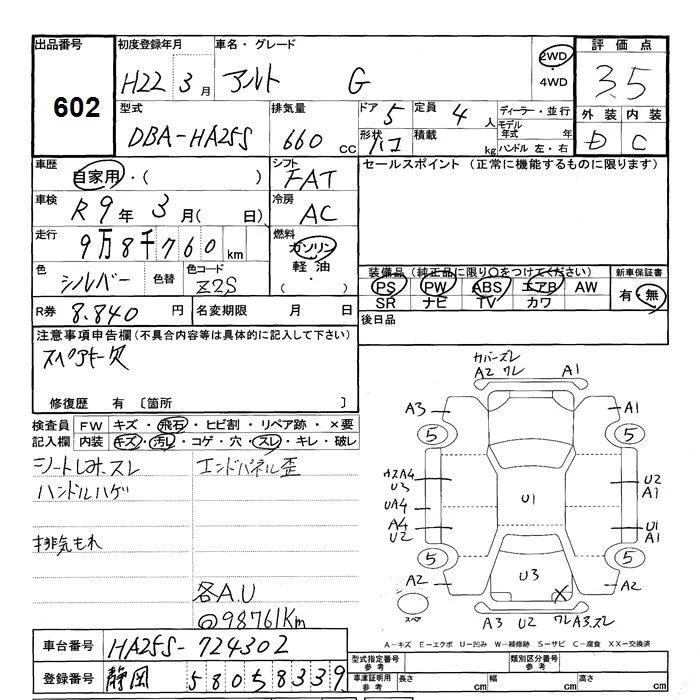 出品番号 初度登録年月 車名・グレード 評価点
602 H22年 3月 アルト G 2WD・4WD 3.5
型式 排気量 ドア 5 定員 4人 ディーラー・並行
モデル年式 年
外装 内装
DBA-HA25S 660cc 形状 ハコ 積載 kg ハンドル 左・右 D C
車歴 自家用・( ) シフト FAT セールスポイント (正常に機能するものに限ります)
車検 R9年 3月( 日) 冷房 AC
走行 9万8千760km 燃料 ガソリン・軽油・( )
色 シルバー 色替 色コード Z2S 装備品 (純正品に限り○をつけてください) 新車保証書
PS PW ABS エアB AW 有・無
SR ナビ TV カワ
R券 8.840円 名変期限 月 日 後日品
注意事項申告欄(不具合内容等は具体的に記入して下さい)
スペアキー欠
修復歴 有 〔箇所 〕
検査員記入欄 FW キズ・飛石・ヒビ割・リペア跡・×要
内装 キズ・汚レ・コゲ・穴・スレ・キレ・破レ
シートしみ、スレ エンドパネル歪
ハンドルハゲ
排気もれ
各A.U
@98761Km
カバーズレ
A2 ワレ A1
A3 A1
5 5
A4
U3 U2
A1
UA4 U1
A4
U2 U1
A1
5 5
A2 U3 A2
スペア A3 U2 ワレ A3.ズレ
A-キズ E-エクボ U-凹み W-補修跡 S-サビ C-腐食 XX-交換済
車台番号 HA25S-724302
型式指定番号 参考 類別区分番号 参考
登録番号 静岡 5 8 0 5 8 3 3 9
車庫証明用 参考 長さ cm 幅 cm 高さ cm